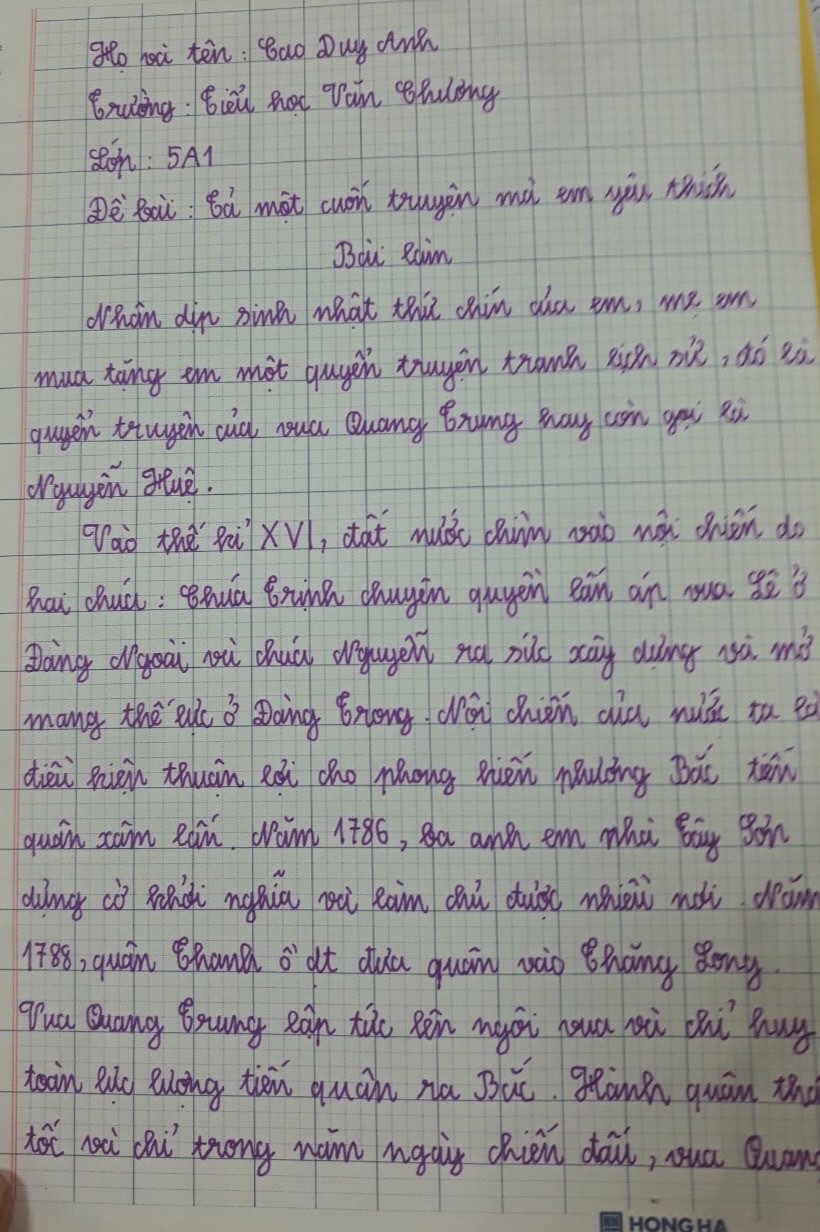 Họ và tên : Cao Duy Anh
Trường : Tiểu học Văn Chương
Lớp : 5A1
Đề bài : Tả một cuốn truyện mà em yêu thích
Bài làm
Nhân dịp sinh nhật thứ chín của em, mẹ em
mua tặng em một quyển truyện tranh lịch sử, đó là
quyển truyện của vua Quang Trung hay còn gọi là
Nguyễn Huệ.
Vào thế kỉ XVI, đất nước chìm vào nội chiến do
hai chúa : Chúa Trịnh chuyên quyền lấn áp vua Lê ở
Đàng Ngoài và chúa Nguyễn ra sức xây dựng và mở
mang thế lực ở Đàng Trong. Nội chiến của nước ta là
điều kiện thuận lợi cho phong kiến phương Bắc tiến
quân xâm lấn. Năm 1786, ba anh em nhà Tây Sơn
dựng cờ khởi nghĩa và làm chủ được nhiều nơi. Năm
1788, quân Thanh ồ ạt đưa quân vào Thăng Long.
Vua Quang Trung lập tức lên ngôi vua và chỉ huy
toàn lực lượng tiến quân ra Bắc. Hành quân thần
tốc và chỉ trong năm ngày chiến đấu, vua Quang
HONG HA